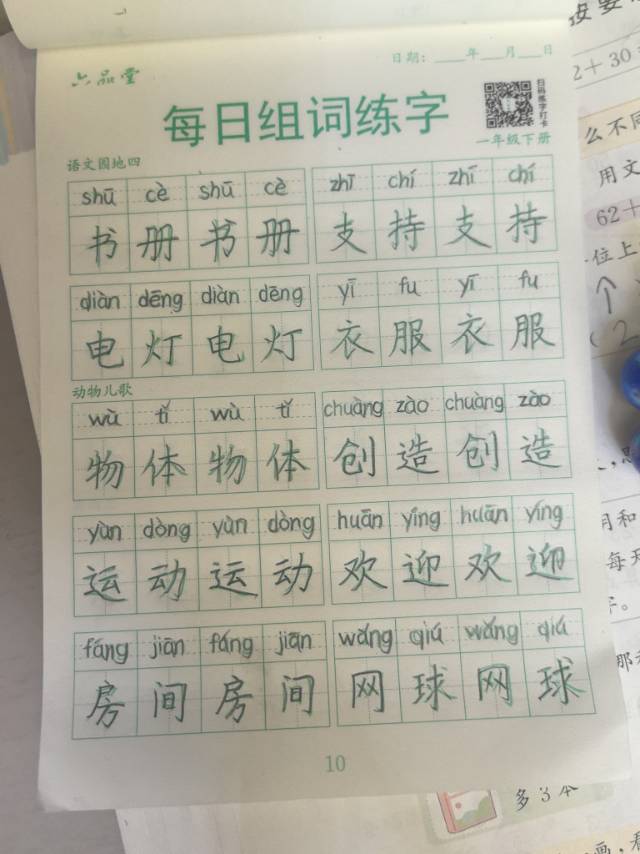 六品堂
日期：____年___月___日
每日组词练字
扫码练字打卡
一年级下册
语文园地四
shū cè shū cè zhī chí zhī chí
书册书册 支持支持
diàn dēng diàn dēng yī fu yī fu
电灯电灯 衣服衣服
动物儿歌
wù tǐ wù tǐ chuàng zào chuàng zào
物体物体 创造创造
yùn dòng yùn dòng huān yíng huān yíng
运动运动 欢迎欢迎
fáng jiān fáng jiān wǎng qiú wǎng qiú
房间房间 网球网球
10
2+30
么不同
用文
62+
位上
(2
月和
每天
字。
那
多3本